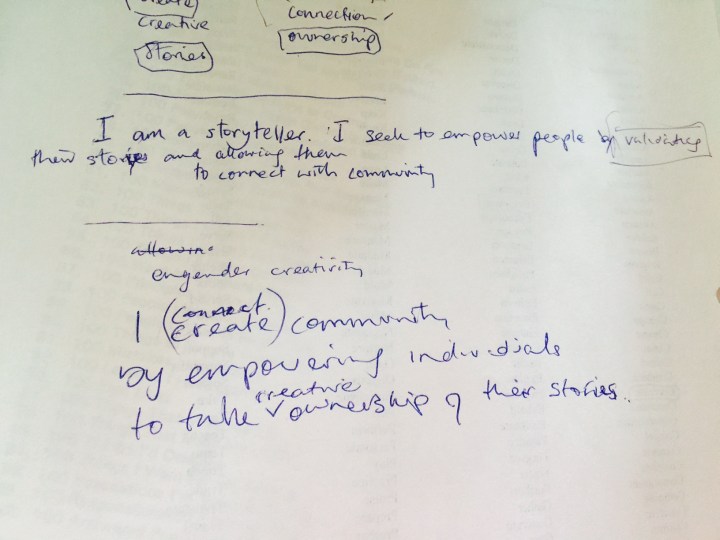 create
creative
stories
connection
ownership
I am a storyteller. I seek to empower people by validating
their stories and allowing them
to connect with community
engender creativity
connect
I (create) community
by empowering individuals
creative
to take ownership of their stories.